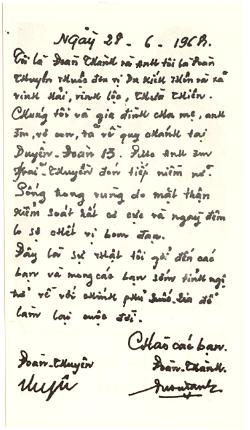 Ngày 28 - 6 - 1968.
Tôi là Đoàn Thành và Anh tôi là Đoàn
Thuyên thuộc đơn vị Du Kích thôn và xã
vinh Hải, vinh lộc, Thừa Thiên.
Chúng tôi và gia đình cha mẹ, anh
em, vợ con, ra về quy chánh tại
Duyên-Đoàn 13. Được Anh em
Duyên đón tiếp niềm nở.
Sống trong vùng do mặt trận
kiểm soát rất cơ cực và ngày đêm
lo sợ chết vì bom đạn.
Đây là sự thật tôi gởi đến các
bạn và mong các bạn sớm tỉnh ngộ
trở về với chính phủ quốc gia để
làm lại cuộc đời.
Chào các bạn.
Đoàn-Thuyên Đoàn-Thành.